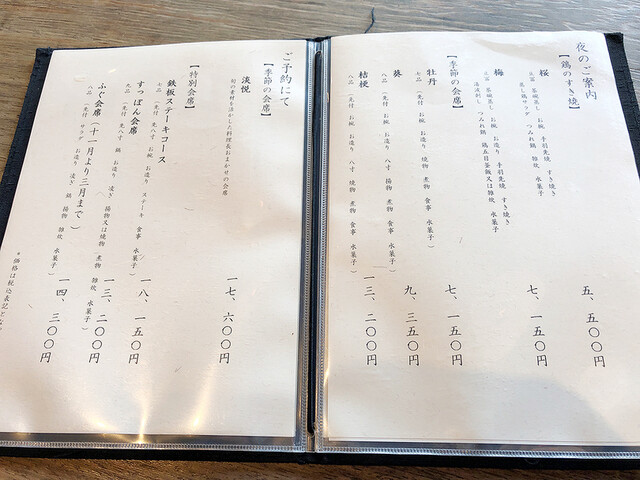 夜のご案内
【鶏のすき焼】
桜
五、五〇〇円
三冨 茶碗蒸し お椀 手羽先焼 すき焼き
蒸し鶏サラダ つみれ鍋 雑炊 水菓子
梅
七、一五〇円
茶碗蒸し お椀 お造り 手羽先焼 すき焼き
つみれ鍋 鶏五目釜飯又は雑炊 水菓子
【季節の会席】
牡丹
七、一五〇円
七品 (先付 お椀 お造り 焼物 煮物 食事 水菓子)
葵
九、三五〇円
八品 (先付 お椀 お造り 八寸 揚物 煮物 食事 水菓子)
桔梗
一三、二〇〇円
八品 (先付 お椀 お造り 八寸 焼物 煮物 食事 水菓子)
ご予約にて
【季節の会席】
淡悦
一七、六〇〇円
旬の素材を活かした料理長おまかせの会席
【特別会席】
鉄板ステーキコース
一八、一五〇円
七品 (先付 先八寸 お椀 お造り ステーキ 食事 水菓子)
すっぽん会席
一三、二〇〇円
九品 (先付 先八寸 鍋 お造り 凌ぎ 揚物又は焼物 煮物 雑炊 水菓子)
ふぐ会席(十一月より三月まで)
一四、三〇〇円
八品 (先付 サラダ お造り 凌ぎ 鍋 揚物 雑炊 水菓子)
*価格は税込表記とな